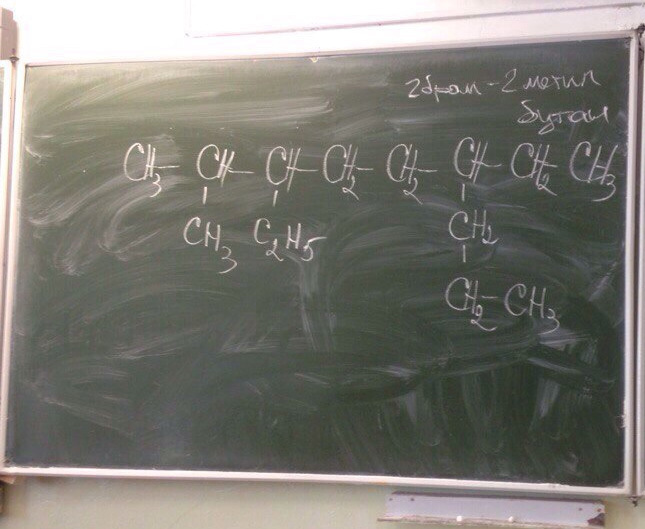 2бром - 2 метил
бутан
CH₃ - CH - CH - CH₂ - CH₂ - CH - CH₂ - CH₃
CH₃ C₂H₅ CH₂
CH₂ - CH₃